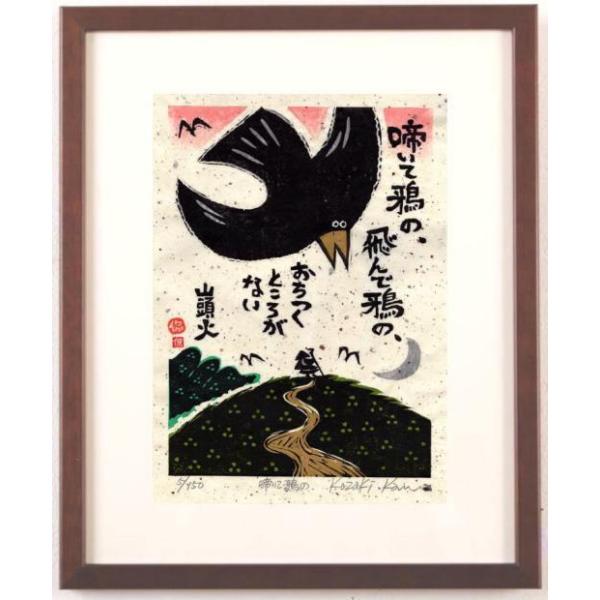 啼いて鴉の、
飛んで鴉の、
おちつく
ところが
ない
山頭火
5/450
啼いて鴉の、
Kozaki.Kan